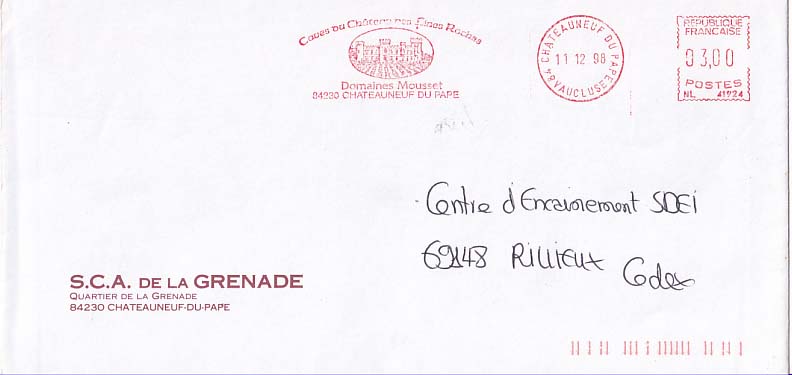 Caves du Château des Fines Roches
Domaines Mousset
84230 CHATEAUNEUF DU PAPE
84 CHATEAUNEUF DU PAPE VAUCLUSE
11 12 98
REPUBLIQUE
FRANCAISE
03,00
POSTES
NL 41924
Centre d'Encaissement SDEI
69148 RILLIEUX Cedex
S.C.A. DE LA GRENADE
QUARTIER DE LA GRENADE
84230 CHATEAUNEUF-DU-PAPE